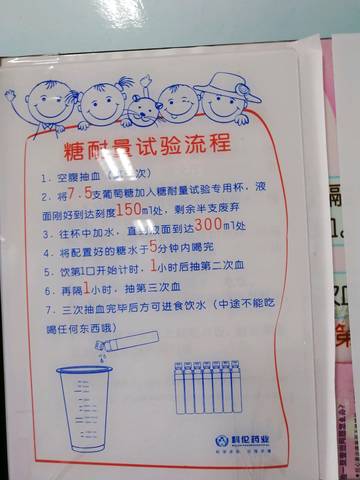 糖耐量试验流程
1. 空腹抽血（第一次）
2. 将7.5支葡萄糖加入糖耐量试验专用杯，液
面刚好到达刻度150ml处，剩余半支废弃
3. 往杯中加水，直到液面到达300ml处
4. 将配置好的糖水于5分钟内喝完
5. 饮第1口开始计时，1小时后抽第二次血
6. 再隔1小时，抽第三次血
7. 三次抽血完毕后方可进食饮水（中途不能吃
喝任何东西哦）
科伦药业